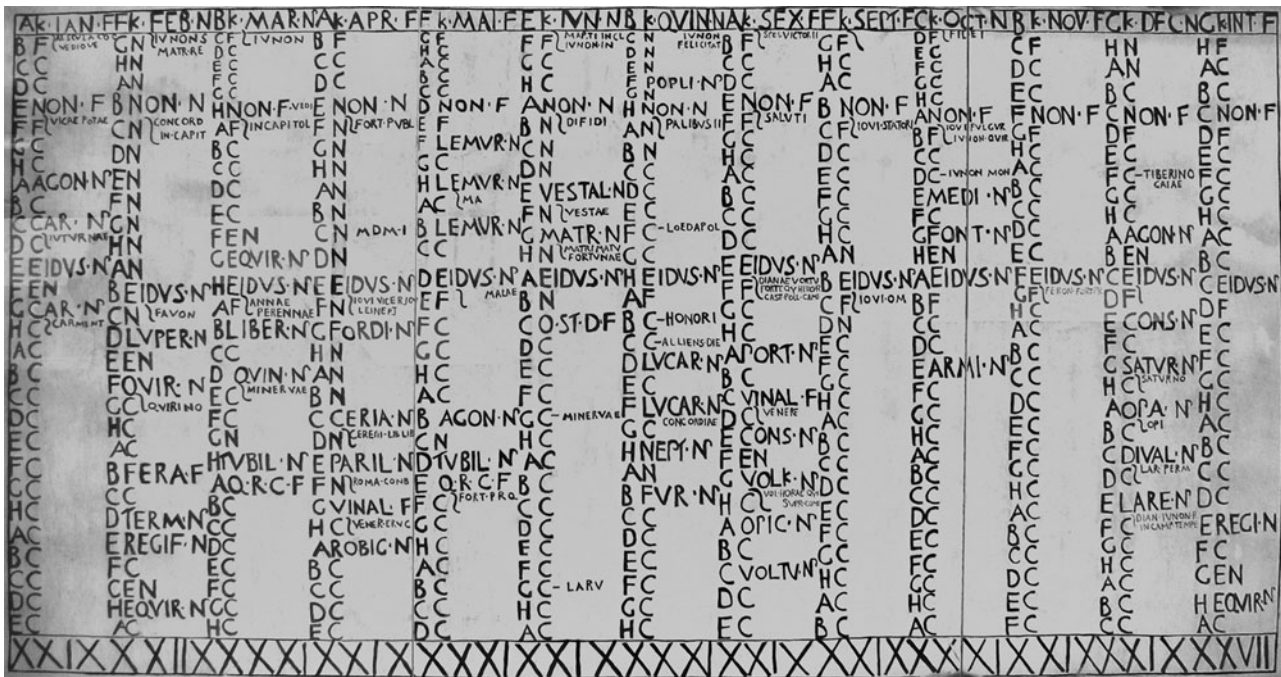 A K·IAN·F
B F
VEDIOVE
C C
D C
E NON·F
F F VICAE POTAE
G C
H C
A AGON·N
B C
C CAR·N
D C IVTVRNAE
E EIDVS·N
F EN
G CAR·N
H C CARMENT
A C
B C
C C
D C
E C
F C
G C
H C
A C
B C
C C
D C
E C
XXIX
F K·FEB·N
G N IVNON S
MATR·RE
H N
A N
B NON·N
C N CONCORD
IN·CAPIT
D N
E N
F N
G N
H N
A N
B EIDVS·N
C N FAVON
D LVPER·N
E EN
F QVIR·N
G C QVIRINO
H C
A C
B FERA·F
C C
D TERM·N
E REGIF·N
F C
G EN
H EQVIR·N
A C
XXVIII
B K·MAR·N
C F IVNON
D C
E C
F C
G C
H NON·F VEDI
A F IN CAPITOL
B C
C C
D C
E C
F EN
G EQVIR·N
H EIDVS·N
A F ANNAE
PERENNAE
B LIBER·N
C C
D QVIN·N
E C MINERVAE
F C
G N
H TVBIL·N
A Q·R·C·F
B C
C C
D C
E C
F C
G C
H C
XXXI
A K·APR·F
B F
C C
D C
E NON·N
F N FORT·PVBL
G N
H N
A N
B N
C N M D M·I
D N
E EIDVS·N
F N IOVI VICE
LEINE
G FORDI·N
H N
A N
B N
C CERIA·N
D N CERERI·LIB·LIB
E PARIL·N
F N ROMA·COND
G VINAL·F
H C VENER·ERVC
A ROBIG·N
B C
C C
D C
E C
XXIX
F K·MAI·F
G F
H C
A C
B C
C C
D NON·F
E F
F LEMVR·N
G C
H LEMVR·N
A C MA
B LEMVR·N
C C
D EIDVS·N
E F MAIAE
F C
G C
H C
A C
B AGON·N
C N
D TVBIL·N
E Q·R·C·F
F C FORT·P·R·Q
G C
H C
A C
B C
C C
D C
XXXI
E K·IVN·N
F F MARTI IN CL
IVNON·IN
G C
H C
A NON·N
B N DI FIDI
C N
D C
E VESTAL·N
F N VESTAE
G MATR·N
H N MATRI MATV
FORTVNAE
A EIDVS·N
B N
C Q·ST·D·F
D C
E C
F C
G C MINERVAE
H C
A C
B C
C C
D C
E C
F C
G C LARV
H C
A C
XXIX
B K·QVIN·N
C N IVNON
FELICITAT
D N
E N
F N
G POPLI·N
H NON·N
A N PALIBVS II
B N
C C
D C
E C
F C LOEDAPOL
G C
H EIDVS·N
A F
B C HONORI
C C ALLIENS DIE
D LVCAR·N
E C
F LVCAR·N
G C CONCORDIAE
H NEPT·N
A N
B FVR·N
C C
D C
E C
F C
G C
H C
XXXI
A K·SEX·F
B F SPEI VICTORII
C C
D C
E NON·F
F F SALVTI
G C
H C
A C
B C
C C
D C
E EIDVS·N
F F DIANAE VORTV
CAST·POLL·CAM
G C
H C
A PORT·N
B C
C VINAL·F
D C VENERE
E CONS·N
F EN
G VOLK·N
H C
A OPIC·N
B C
C VOLTV·N
D C
E C
XXIX
F K·SEPT·F
G F
H C
A C
B NON·F
C F IOVI·STATORI
D C
E C
F C
G C
H C
A N
B EIDVS·N
C F IOVI·OM
D N
E C
F C
G C
H C
A C
B C
C C
D C
E C
F C
G C
H C
A C
B C
XXIX
C K·OCT·N
D F FIDEI
E C
F C
G C
H C
A NON·F
B F IOVI FVLGVR
IVNON QVIR
C C
D C IVNON MON
E MEDI·N
F C
G FONT·N
H EN
A EIDVS·N
B F
C C
D C
E ARMI·N
F C
G C
H C
A C
B C
C C
D C
E C
F C
G C
H C
A C
XXXI
B K·NOV·F
C F
D C
E C
F NON·F
G F
H C
A C
B C
C C
D C
E C
F EIDVS·N
G F
H C
A C
B C
C C
D C
E C
F C
G C
H C
A C
B C
C C
D C
E C
F C
XXIX
G K·DEC·N
H N
A N
B C
C NON·F
D F
E C
F C TIBERINO
GAIAE
G C
H C
A AGON·N
B EN
C EIDVS·N
D F
E CONS·N
F C
G SATVR·N
H C SATVRNO
A OPA·N
B C OPI
C DIVAL·N
D C LAR·PERM
E LARE·N
F C DIAN·IVNON·R
IN CAMP TEMPE
G C
H C
A C
B C
C C
XXIX
G K·INT·F
H F
A C
B C
C NON·F
D F
E C
F C
G C
H C
A C
B C
C EIDVS·N
D F
E C
F C
G C
H C
A C
B C
C C
D C
E REGI·N
F C
G EN
H EQVIR·N
A C
XXVII